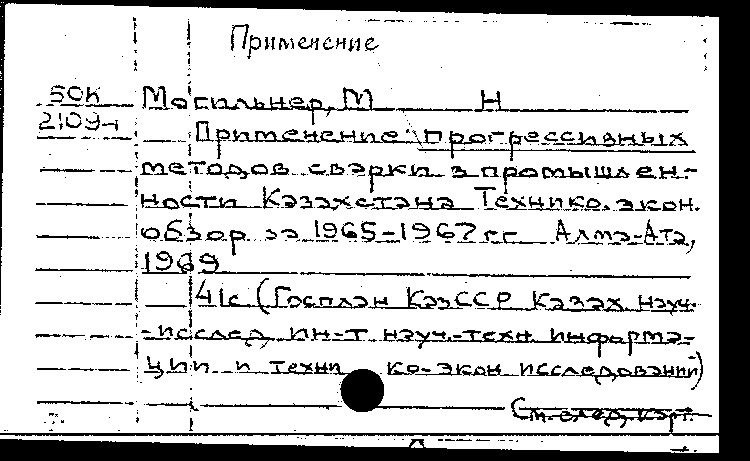 Применение
50К
2109-1
Могильнер, М Н
Применение прогрессивных
методов сварки в промышлен-
ности Казахстана Технико.экон.
обзор за 1965-1967 гг Алма-Ата,
1969
41с (Госплан КазССР Казах науч.-
-исслед, ин-т науч.-техн информа-
ции и техни ко-экон исследований)
См.след,карт.